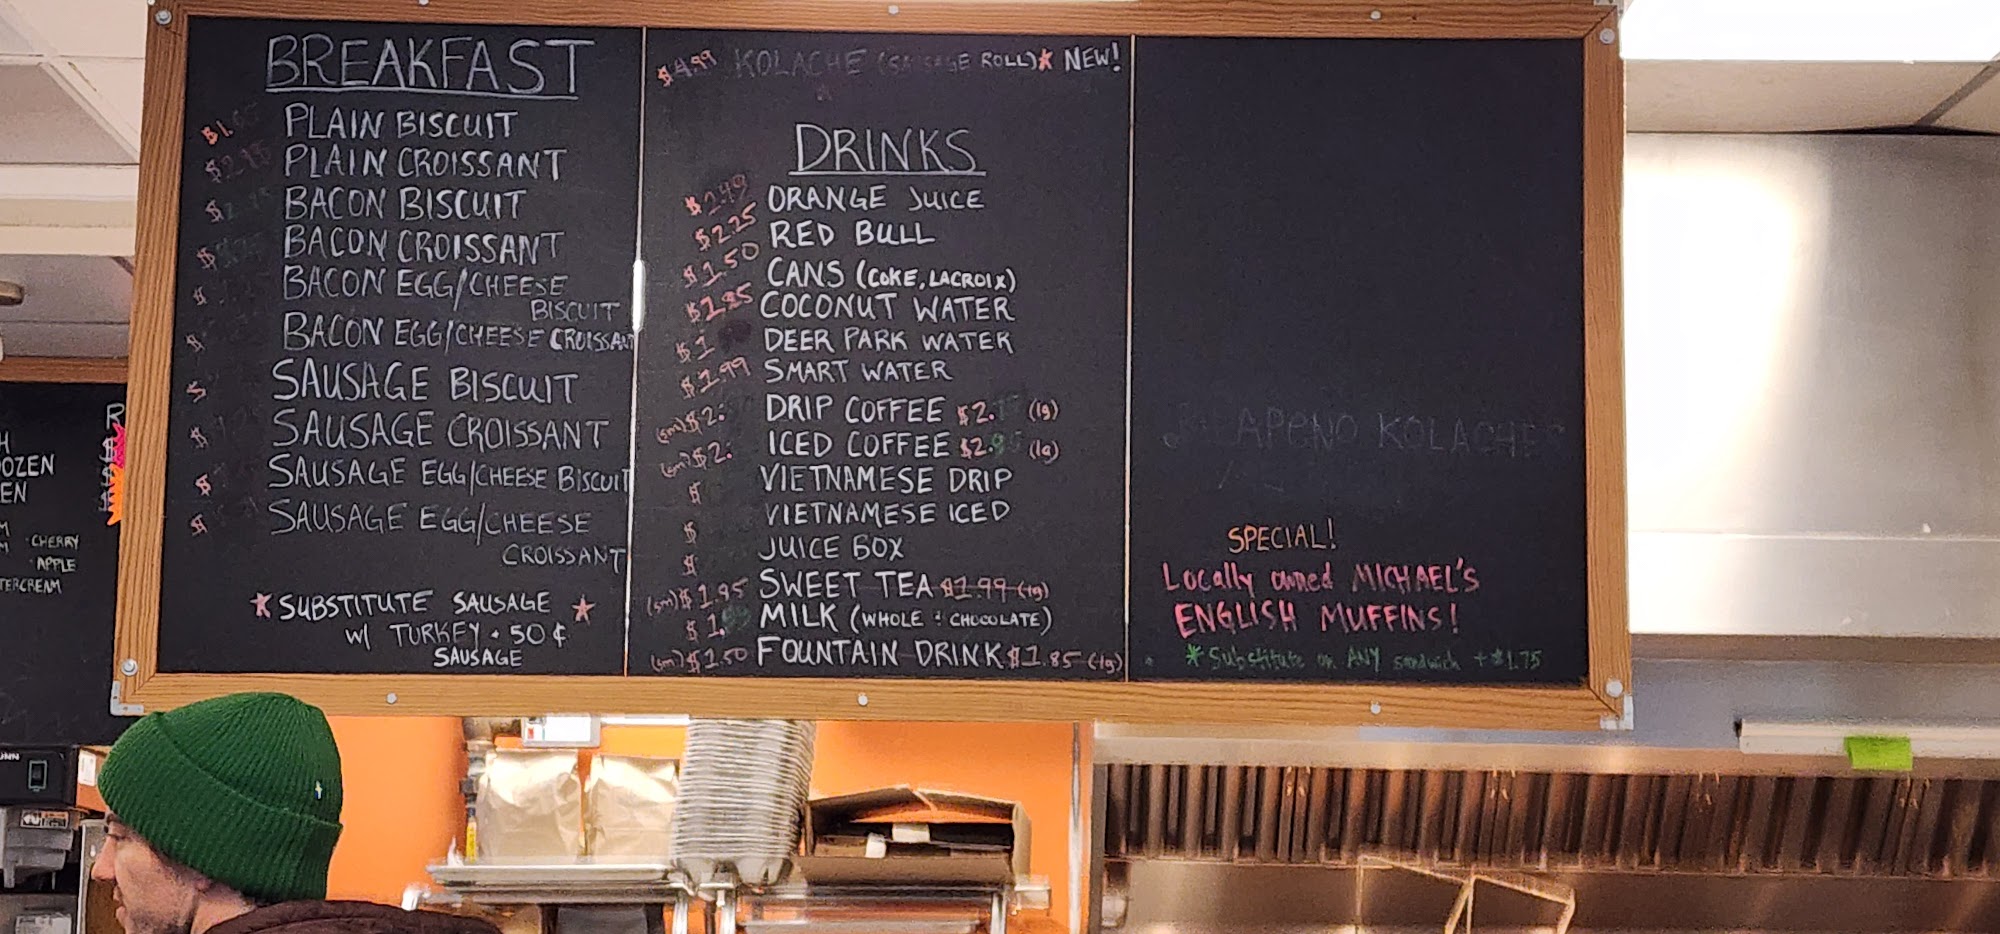 BREAKFAST
PLAIN BISCUIT
PLAIN CROISSANT
BACON BISCUIT
BACON CROISSANT
BACON EGG/CHEESE
BISCUIT
BACON EGG/CHEESE CROISSANT
SAUSAGE BISCUIT
SAUSAGE CROISSANT
SAUSAGE EGG/CHEESE BISCUIT
SAUSAGE EGG/CHEESE
CROISSANT
* SUBSTITUTE SAUSAGE *
W/ TURKEY • 50¢
SAUSAGE
$4.99 KOLACHE (SAUSAGE ROLL)* NEW!
DRINKS
$2.49 ORANGE JUICE
$2.25 RED BULL
$1.50 CANS (COKE, LACROIX)
$1.95 COCONUT WATER
$1 DEER PARK WATER
$1.99 SMART WATER
(sm) $2. DRIP COFFEE $2. (lg)
(sm) $2. ICED COFFEE $2.95 (lg)
$ VIETNAMESE DRIP
$ VIETNAMESE ICED
$ JUICE BOX
(sm) $1.95 SWEET TEA $1.99 (lg)
$1. MILK (WHOLE & CHOCOLATE)
(sm) $1.50 FOUNTAIN DRINK $1.85 (lg)
JALAPENO KOLACHE
SPECIAL!
Locally owned MICHAEL'S
ENGLISH MUFFINS!
* Substitute on ANY sandwich +$1.75
OZEN
EN
CHERRY
APPLE
TERCREAM